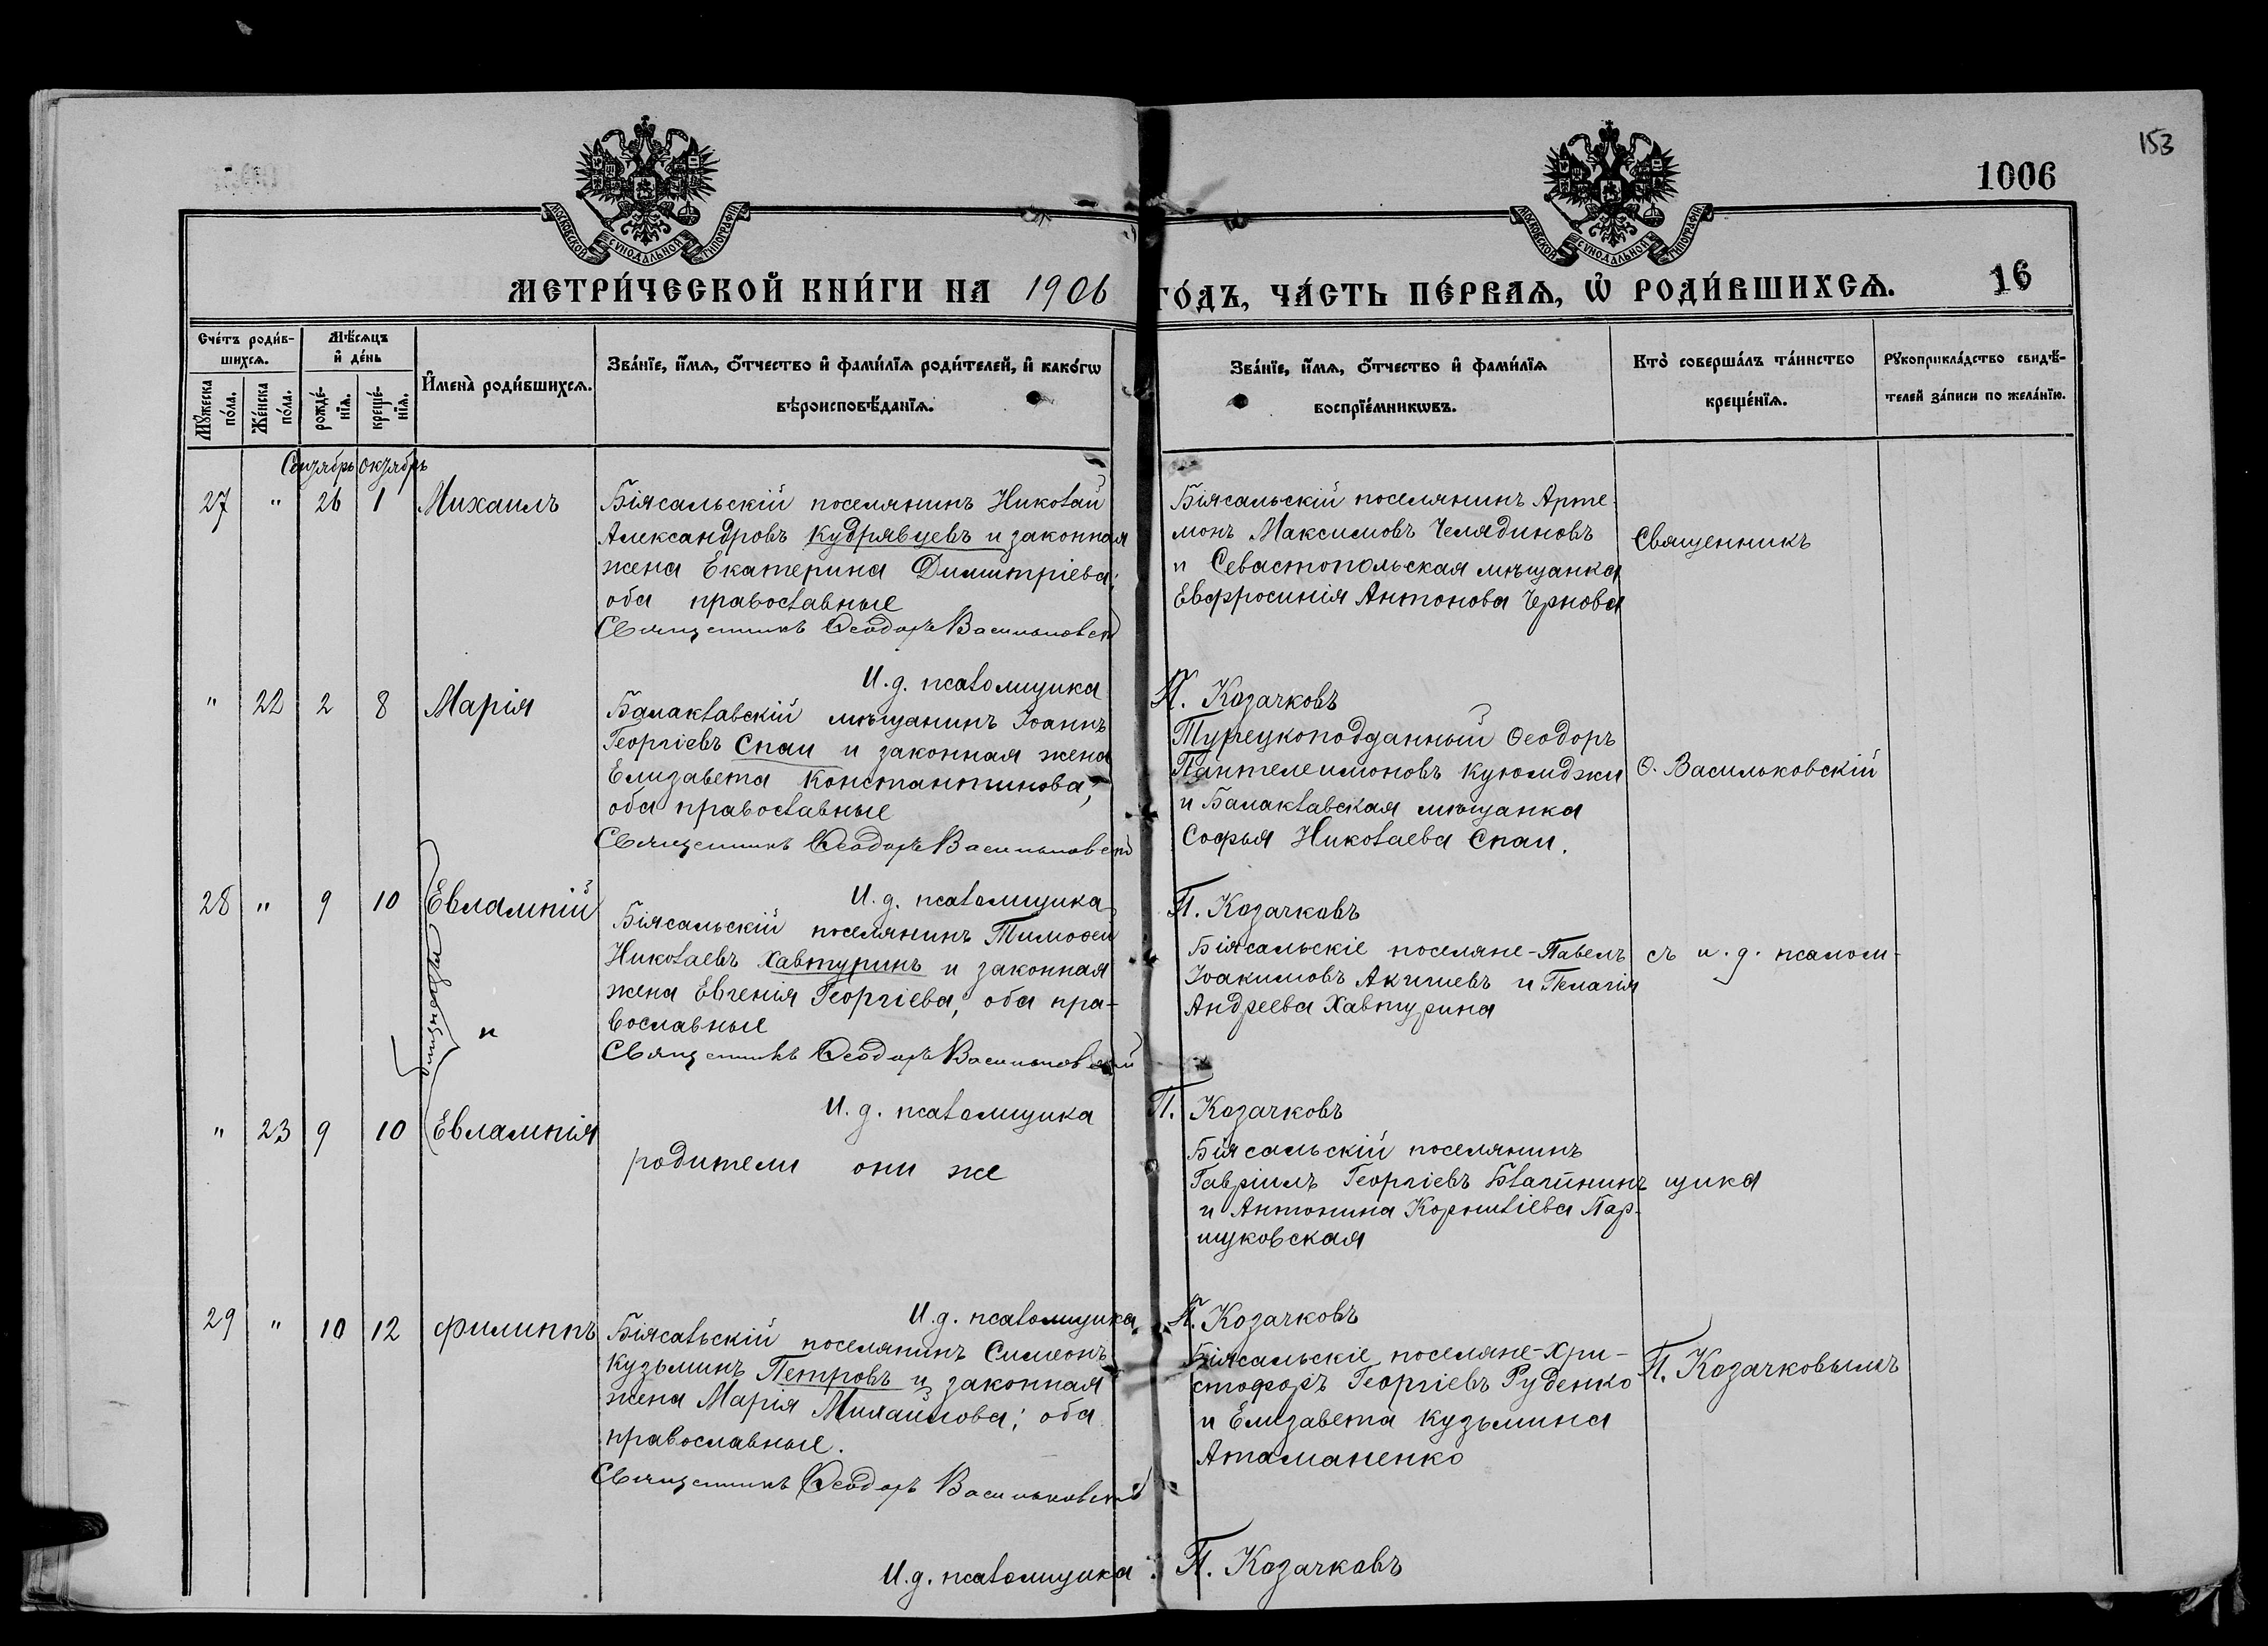 153
1006
МОСКОВСКОЙ СѴНОДАЛЬНОЙ ТИПОГРАФІИ
МОСКОВСКОЙ СѴНОДАЛЬНОЙ ТИПОГРАФІИ
МЕТРИ́ЧЕСКОЙ КНИ́ГИ НА 1906 ГО́ДЪ, ЧА́СТЬ ПЕ́РВАѦ, Ѡ҆ РОДИ́ВШИХСѦ. 16
Сче́тъ роди́в-
шихсѧ.
Мꙋ́жеска по́ла.
Же́нска по́ла.
Мѣ́сѧцъ
и҆ де́нь
рожде́-
нїѧ.
креще́-
нїѧ.
И҆мена̀ роди́вшихсѧ.
Зва́нїе, и҆́мѧ, ѻ҆́тчество и҆ фами́лїѧ роди́телей, и҆ како́гѡ
вѣроисповѣ́данїѧ.
Зва́нїе, и҆́мѧ, ѻ҆́тчество и҆ фами́лїѧ
воспрїе́мникѡвъ.
Кто̀ соверша́лъ та́инство
креще́нїѧ.
Рꙋкоприкла́дство свидѣ́-
телей за́писи по жела́нїю.
Сентябрь Октябрь
27 " 26 1 Михаилъ
Біясальскій поселянинъ Николай
Александровъ Кудрявцевъ и законная
жена Екатерина Димитріева;
оба православные
Священникъ Ѳеодоръ Васильковскій
Біясальскій поселянинъ Арте-
монъ Максимовъ Челядиновъ
и Севастопольская мѣщанка
Евфросинія Антонова Чернова
Священникъ
И.д. псаломщика П. Козачковъ
" 22 2 8 Марія
Балаклавскій мѣщанинъ Іоаннъ
Георгіевъ Спаи и законная жена
Елизавета Константинова;
оба православные
Священникъ Ѳеодоръ Васильковскій
Турецкоподданный Ѳеодоръ
Пантелеимоновъ Куюмджи
и Балаклавская мѣщанка
Софья Николаева Спаи.
Ѳ. Васильковскій
И.д. псаломщика П. Козачковъ
28 " 9 10 Евлампій
Біясальскій поселянинъ Тимоѳей
Николаевъ Хавтуринъ и законная
жена Евгенія Георгіева, оба пра-
вославные
Священникъ Ѳеодоръ Васильковскій
Біясальскіе поселяне-Павелъ
Іоакимовъ Акишевъ и Пелагія
Андреева Хавтурина
съ и.д. псалом-
близнецы
и
И.д. псаломщика П. Козачковъ
" 23 9 10 Евлампія
родители они же
Біясальскій поселянинъ
Гавріилъ Георгіевъ
и Антонина Корниліева Пар-
щуковская
щика
И.д. псаломщика П. Козачковъ
29 " 10 12 Филиппъ
Біясальскій поселянинъ Симеонъ
Кузьминъ Петровъ и законная
жена Марія Михаилова; оба
православные.
Священникъ Ѳеодоръ Васильковскій
Біясальскіе поселяне-Хри-
стофоръ Георгіевъ Руденко
и Елизавета Кузьмина
Атаманенко
П. Козачковымъ
И.д. псаломщика П. Козачковъ